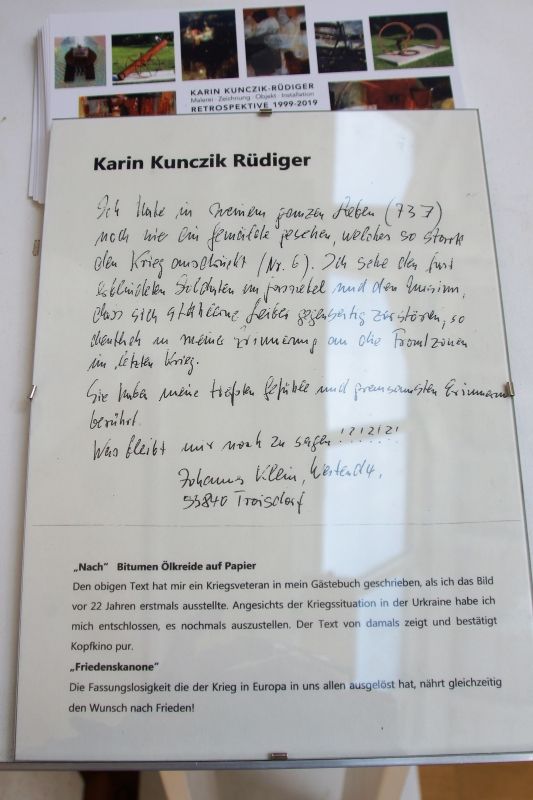 KARIN KUNCZIK-RÜDIGER
Malerei · Zeichnung · Objekt · Installation
RETROSPEKTIVE 1999-2019
Karin Kunczik Rüdiger
Ich habe in meinem ganzen Leben (73J)
noch nie ein Gemälde gesehen, welches so stark
den Krieg ausdrückt (Nr. 6). Ich sehe den fast
erblindeten Soldaten im und den
dass sich Leiber gegenseitig zerstören, so
deutlich in meine Erinnerung an die Frontzonen
im letzten Krieg.
Sie haben meine tiefsten Gefühle und grausamsten
berührt.
Was bleibt mir noch zu sagen !?!?!?!
Johannes Klein, Westend 4,
53840 Troisdorf
„Nach“ Bitumen Ölkreide auf Papier
Den obigen Text hat mir ein Kriegsveteran in mein Gästebuch geschrieben, als ich das Bild
vor 22 Jahren erstmals ausstellte. Angesichts der Kriegssituation in der Urkraine habe ich
mich entschlossen, es nochmals auszustellen. Der Text von damals zeigt und bestätigt
Kopfkino pur.
„Friedenskanone“
Die Fassungslosigkeit die der Krieg in Europa in uns allen ausgelöst hat, nährt gleichzeitig
den Wunsch nach Frieden!